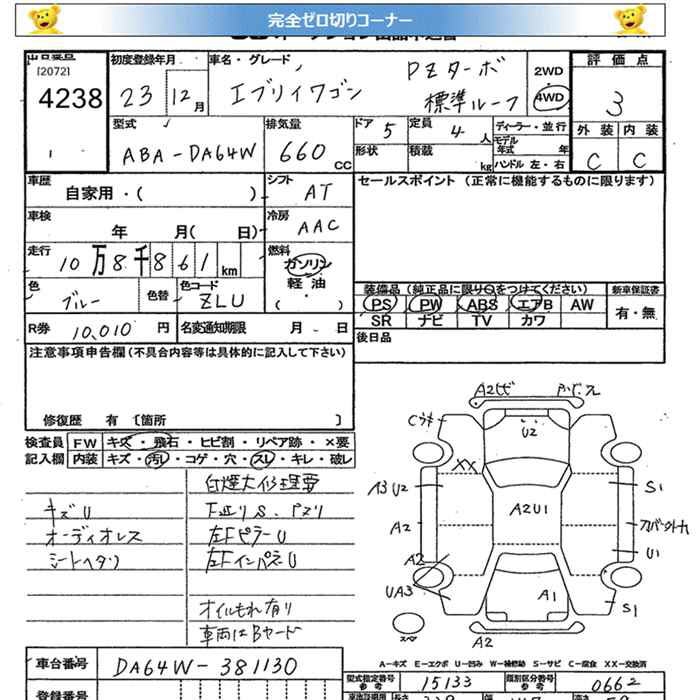 完全ゼロ切りコーナー
出品番号 初度登録年月 車名・グレード 評価点
[2072] PZターボ 2WD
4238 23 12月 エブリイワゴン 標準ルーフ 4WD 3
1 型式 排気量 ドア 5 定員 4人 ディーラー・並行 外装 内装
ABA-DA64W 660 CC 形状 積載 kg モデル年式 年 C C
ハンドル 左・右
車歴 シフト セールスポイント (正常に機能するものに限ります)
自家用・( ) AT
車検 冷房
年 月( 日) AAC
走行 燃料
10万8千861km ガソリン
軽油
色 色替 色コード ( ) 装備品 (純正品に限り○をつけてください) 新車保証書
ブルー ZLU PS PW ABS エアB AW 有・無
R券 10,010円 名変通知期限 月 日 SR ナビ TV カワ
注意事項申告欄 (不具合内容等は具体的に記入して下さい) 後日品
修復歴 有 〔箇所 〕
検査員 FW キズ・飛石・ヒビ割・リペア跡・×要
記入欄 内装 キズ・汚レ・コゲ・穴・スレ・キレ・破レ
キズU
オーディオレス 左FピラーU
シートヘタリ 左FインパネU
オイルもれ有り
車両はBヤード
U2
XX
A3 U2 S1
A2 A2U1
A2 U1
UA3 A1 S1
A2
A-キズ E-エクボ U-凹み W-補修跡 S-サビ C-腐食 XX-交換済
車台番号 DA64W-381130
型式指定番号 参考 15133 類別区分番号 参考 0662
登録番号